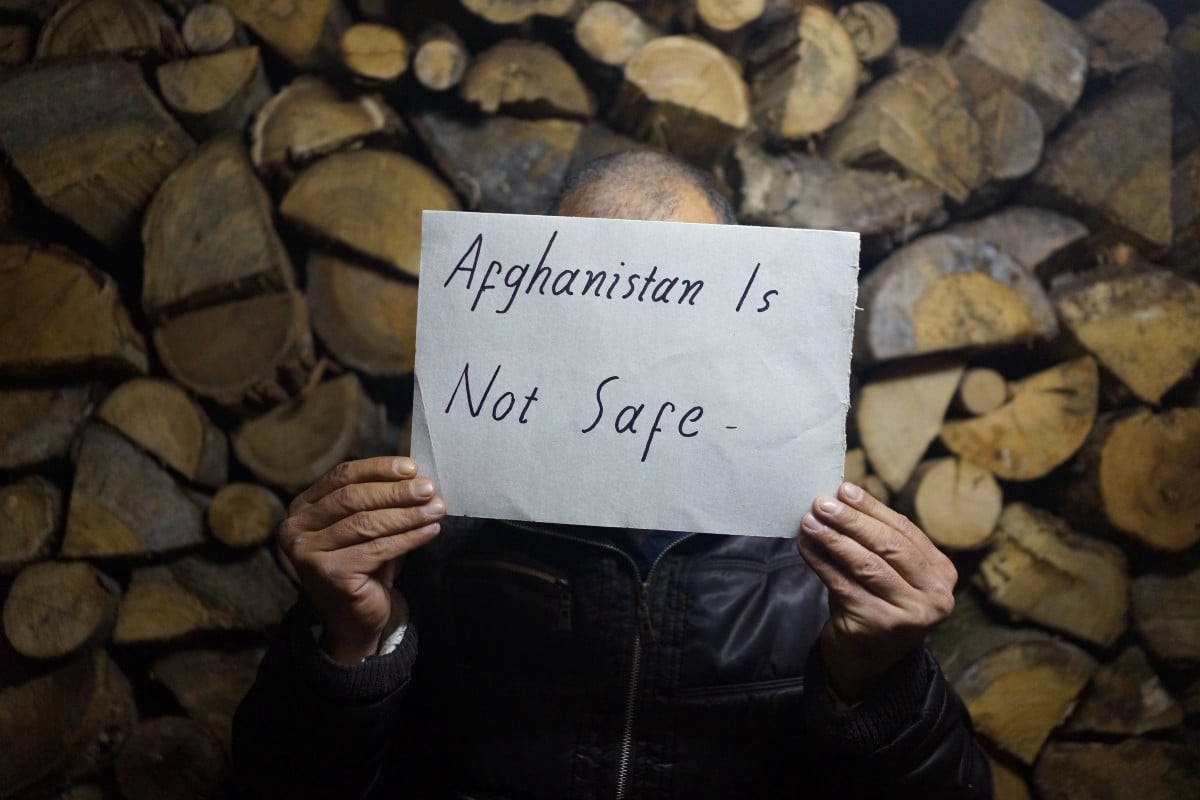 Afghanistan Is
Not Safe -